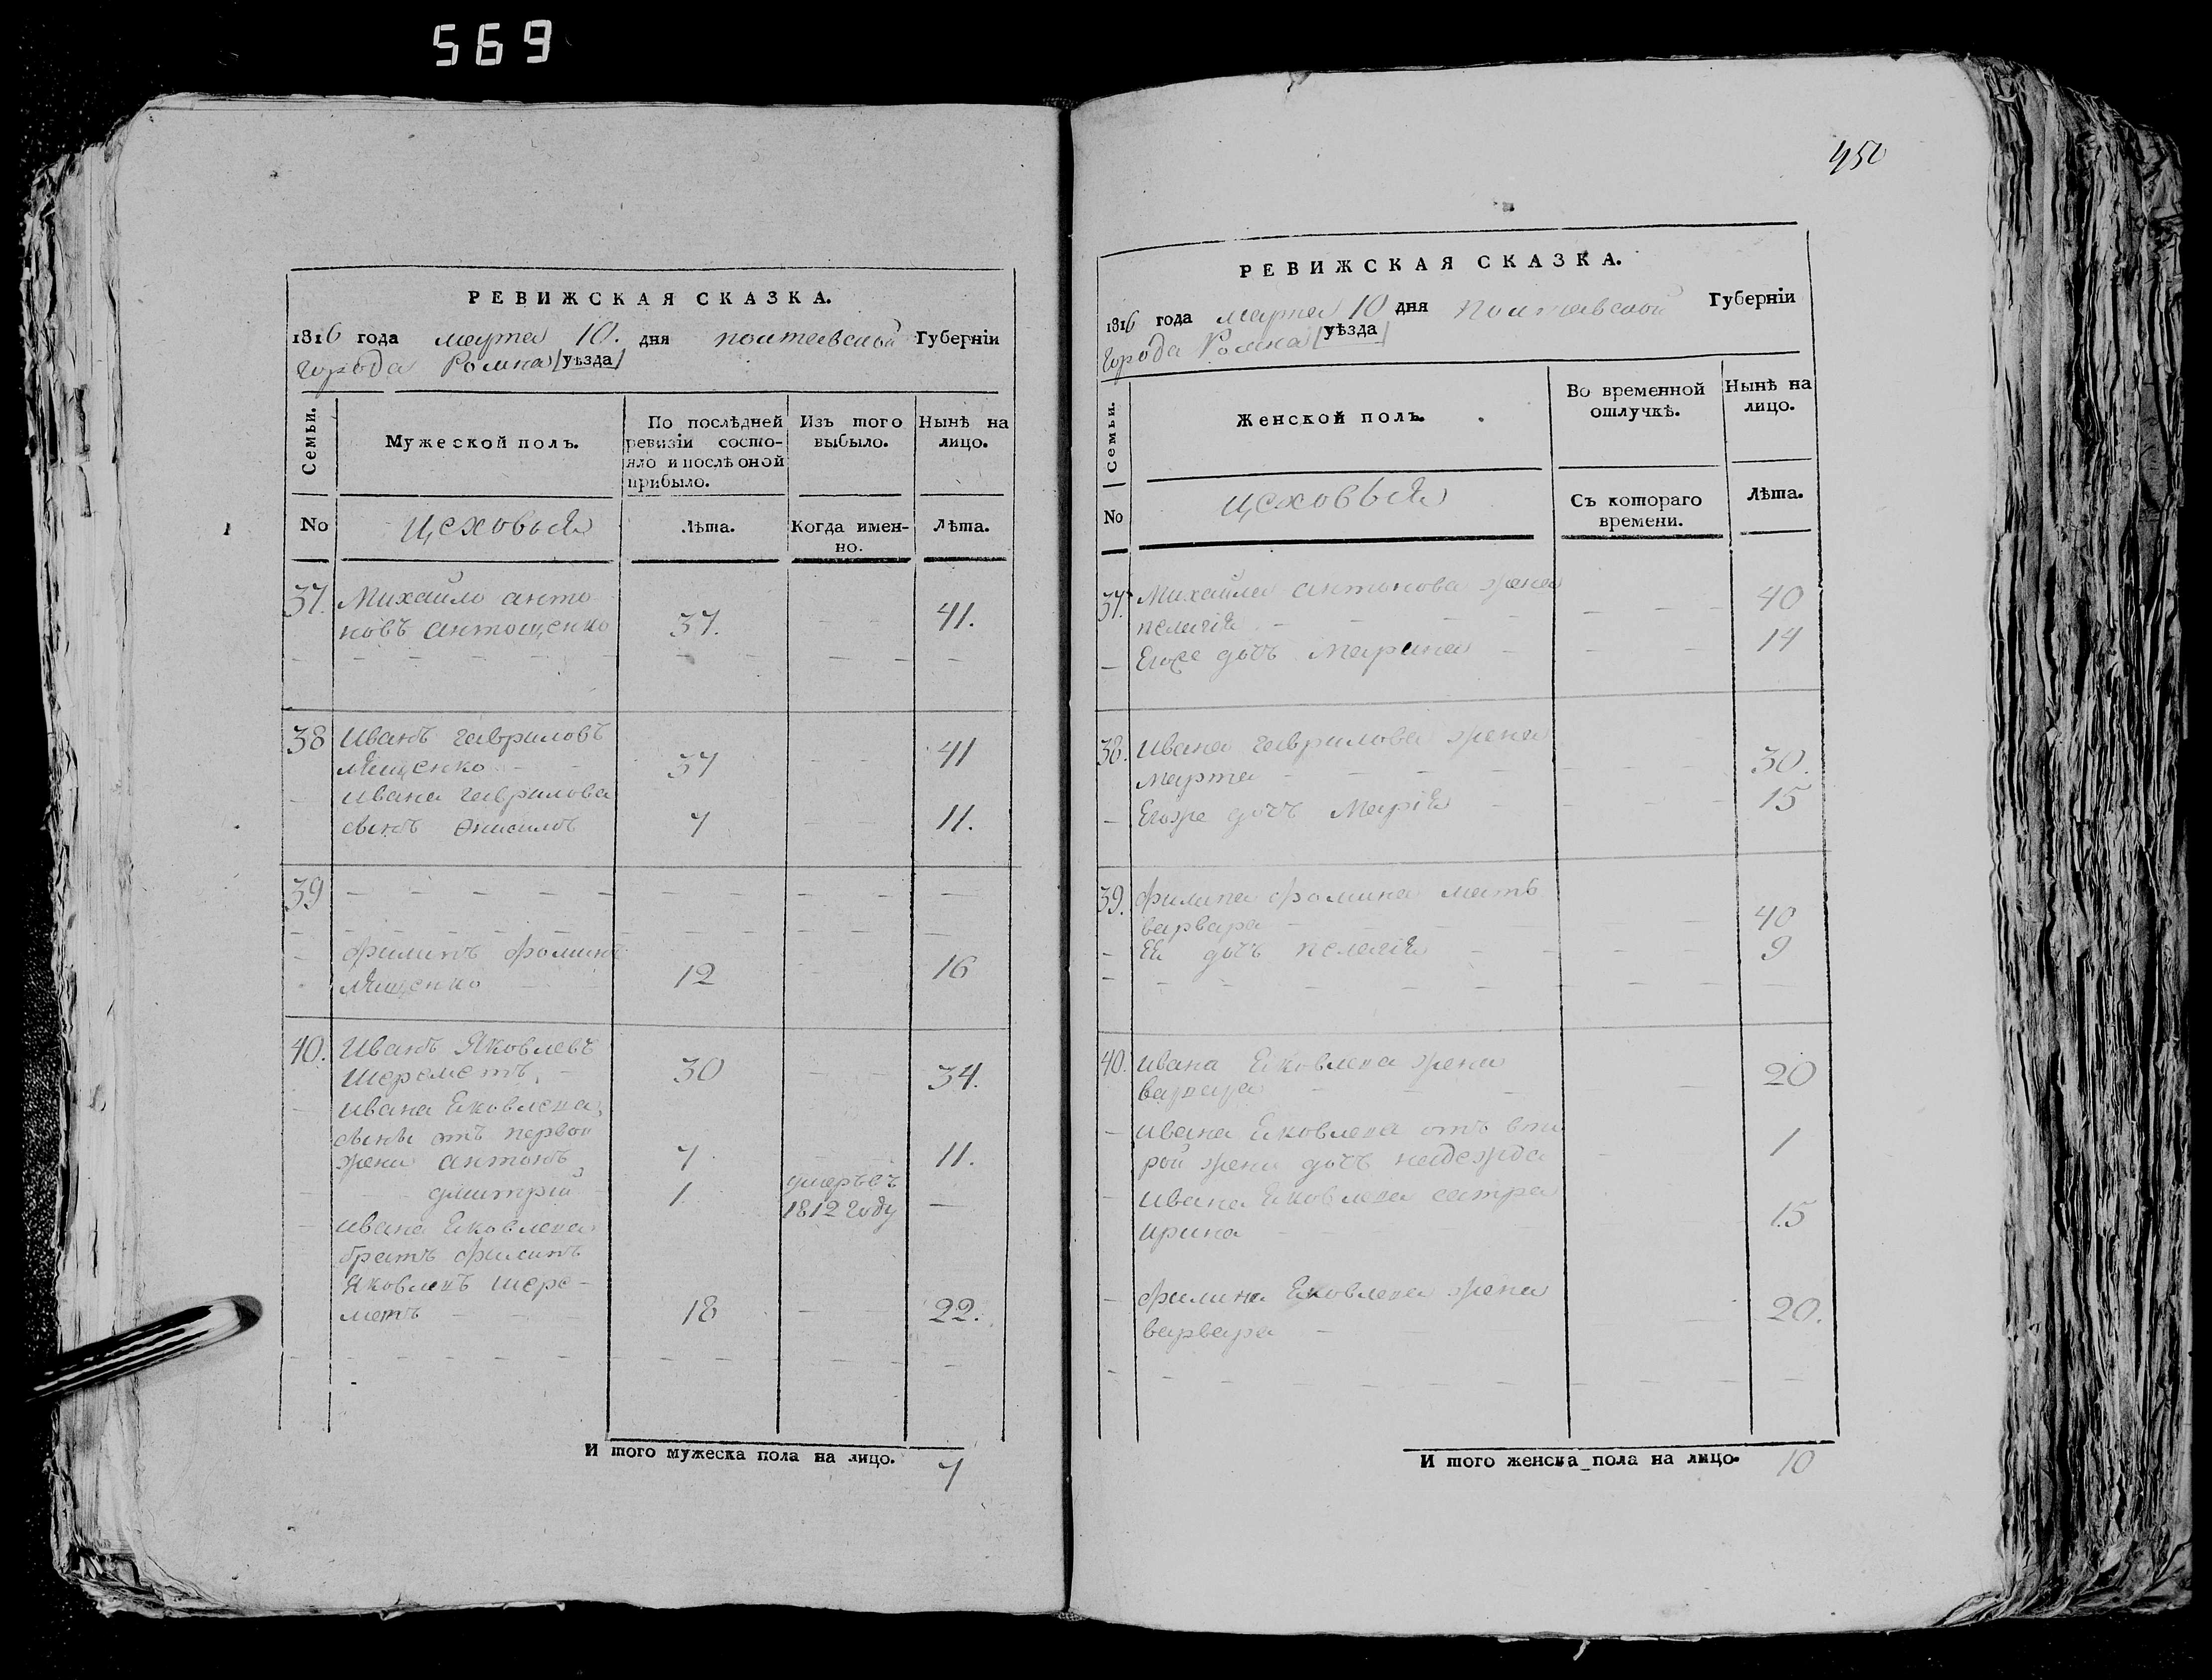 569
РЕВИЖСКАЯ СКАЗКА.
1816 года марта 10. дня полтавской Губерніи
города Ромна [уѣзда]
Семьи.
Мужеской полъ.
По послѣдней ревизіи состо-
яло и послѣ оной прибыло.
Изъ того выбыло.
Нынѣ на лицо.
No
Цеховыя
Лѣта.
Когда имен-
но.
Лѣта.
37. Михайло анто-
новъ антощенко 37. 41.
38 Иванъ гавриловъ
Ященко 37 41
ивана гаврилова
сынъ 7 11.
39
филипъ фоминъ
Ященко 12 16
40. Иванъ Яковлевъ
Шереметъ 30 34.
ивана Яковлева
сынъ отъ первой
жени антонъ 7 11.
дмитрій 1. умеръ въ
1812 году
ивана Яковлева
братъ филипъ
Яковлевъ шере-
метъ 18 22.
И того мужеска пола на лицо. 7
450
РЕВИЖСКАЯ СКАЗКА.
1816 года марта 10 дня Полтавской Губерніи
города Ромна [уѣзда]
Семьи.
Женской полъ.
Во временной
отлучкѣ.
Нынѣ на
лицо.
No
цеховыя
Съ котораго
времени.
Лѣта.
37. Михайла антонова жена
пелагія 40
Егоже дочъ Марина 14
38. Ивана гаврилова жена
марта 30.
Егоже дочъ Марія 15
39. филипа фомина мать
варвара 40
Ея дочъ пелагія 9
40. ивана Яковлева жена
варвара 20
ивана Яковлева отъ вто
рой жени дочъ надежда 1
ивана Яковлева сестра
ирина 15
филипа Яковлева жена
варвара 20.
И того женска пола на лицо. 10